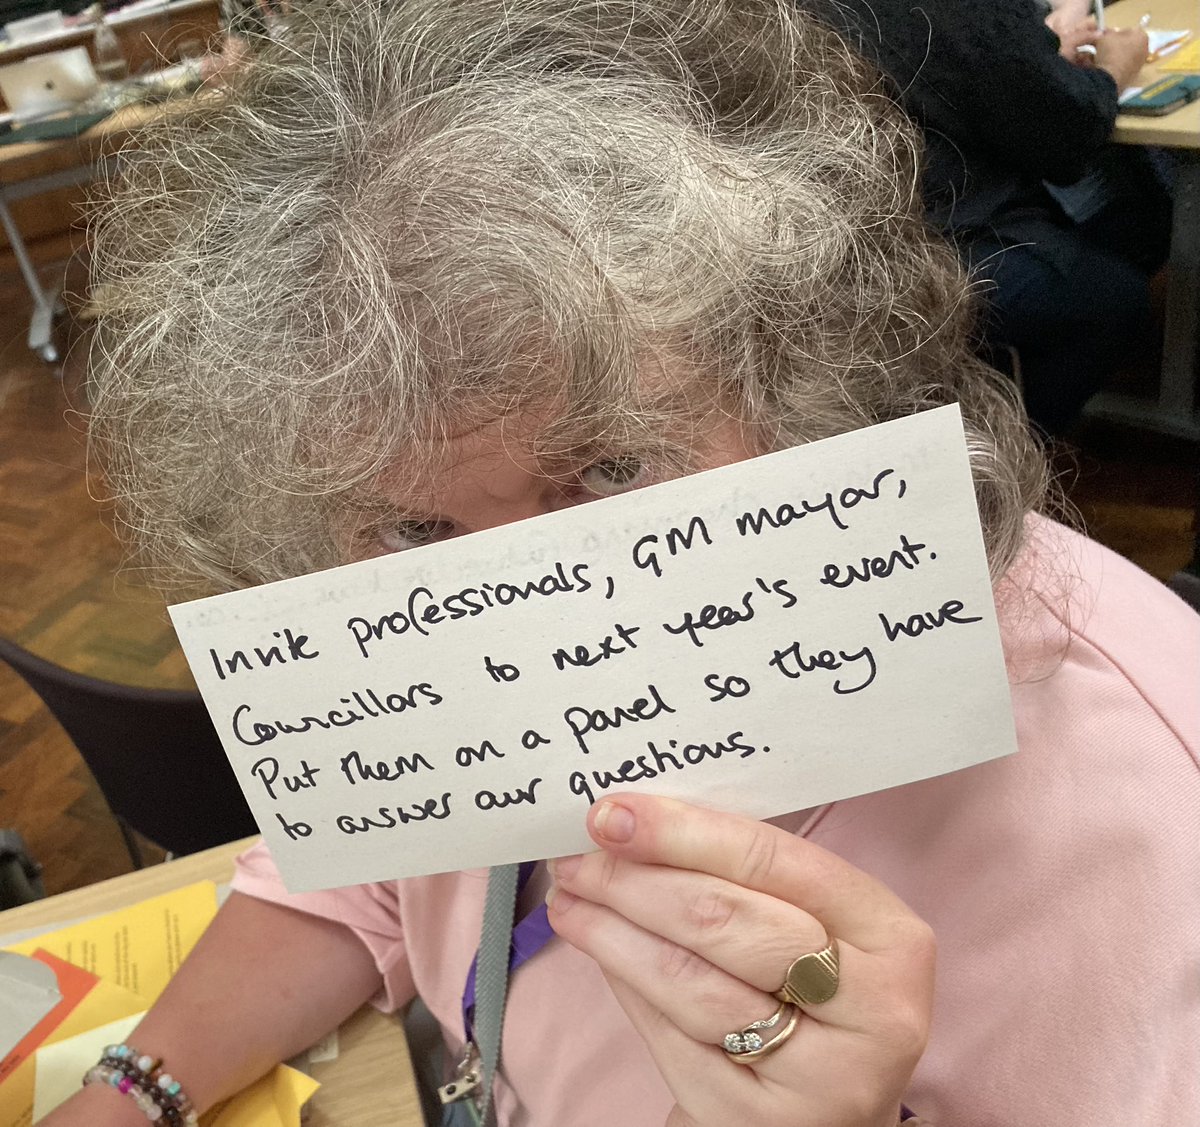 Invite professionals, GM mayor,
Councillors to next year's event.
Put them on a panel so they have
to answer our questions.